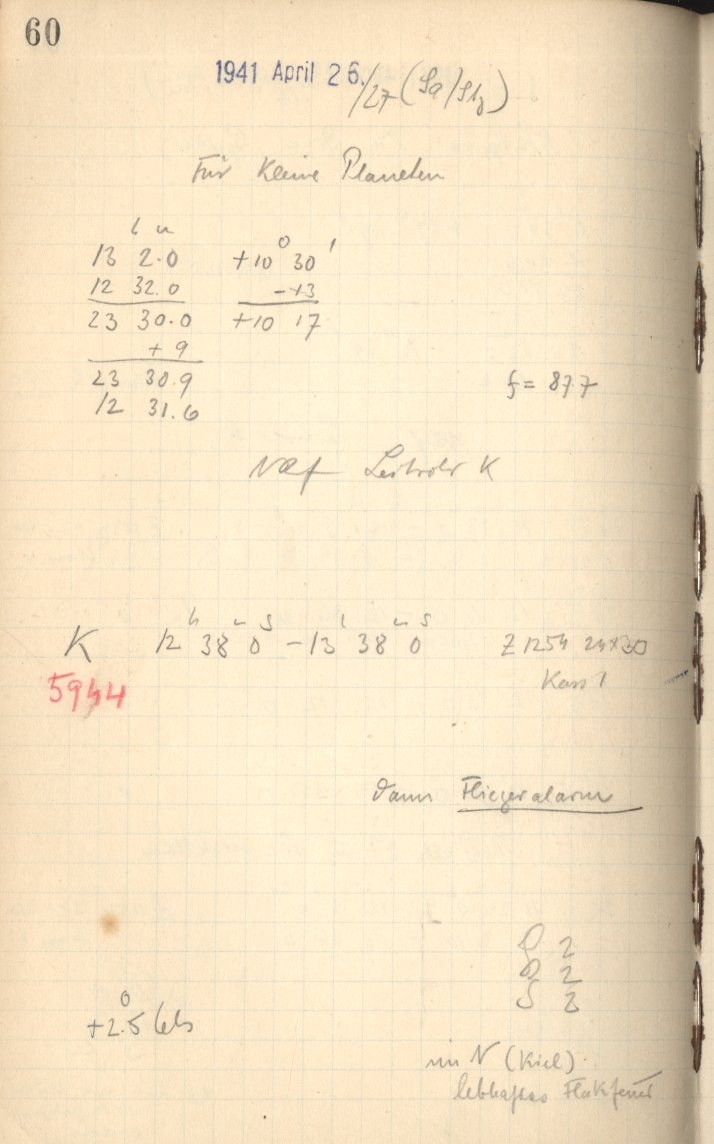 60
1941 April 26./27 (Sa/Stg)
Für Kleine Planeten
h m
13 2.0 +10° 30'
12 32.0 -13
23 30.0 +10 17
+ 9
23 30.9
12 31.6 f = 87.7
K
K 12h 38m 0s - 13h 38m 0s Z 1254 24x30
5944 Kass 1
dann Fliegeralarm
2
2
+2.5° Cels S 2
im N (Kiel)
lebhaftes Flakfeuer